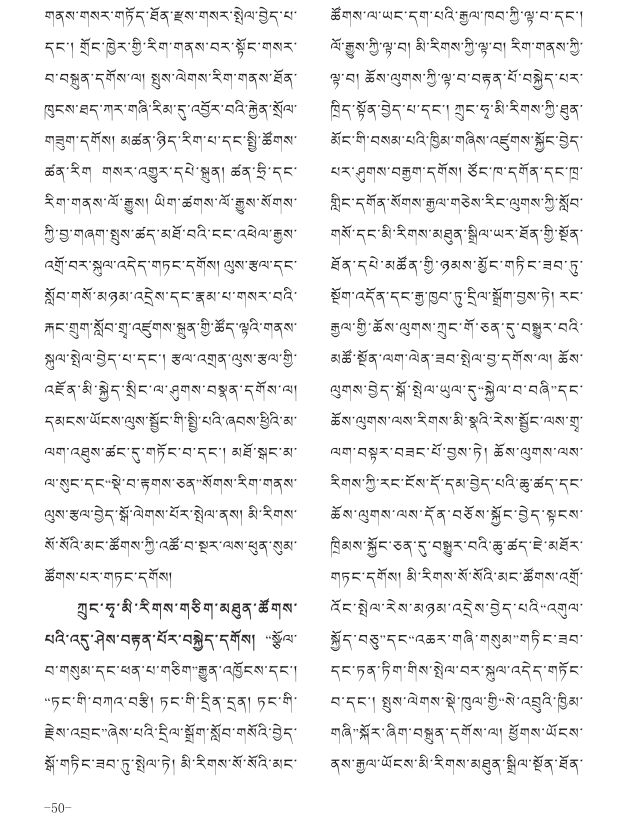 གནས་གསར་གཏོད་ཐོན་རྫས་གསར་སྤེལ་བྱེད་པ་
དང་། གྲོང་ཁྱེར་གྱི་རིག་གནས་བར་སྟོང་གསར་
བ་བསྐྲུན་དགོས་ལ། སྤུས་ལེགས་རིག་གནས་ཐོན་
ཁུངས་ཐད་ཀར་གཞི་རིམ་དུ་འབྱོར་བའི་རྐྱེན་སྲོལ་
གཟུག་དགོས། མཚན་ཉིད་རིག་པ་དང་སྤྱི་ཚོགས་
ཚན་རིག གསར་འགྱུར་དཔེ་སྐྲུན། ཚན་ཧྲི་དང་
རིག་གནས་ལོ་རྒྱུས། ཡིག་ཚགས་ལོ་རྒྱུས་སོགས་
ཀྱི་བྱ་གཞག་སྤུས་ཚད་མཐོ་བའི་ངང་འཕེལ་རྒྱས་
འགྲོ་བར་སྐུལ་འདེད་གཏང་དགོས། ལུས་རྩལ་དང་
སློབ་གསོ་མཉམ་འདྲེས་དང་རྣམ་པ་གསར་བའི་
རྐང་གྲུག་སློབ་གྲྭ་འཛུགས་སྐྲུན་གྱི་ཚོད་ལྟའི་གནས་
སྐུལ་སྤེལ་བྱེད་པ་དང་། རྩལ་འགྲན་ལུས་རྩལ་གྱི་
འཇོན་མི་སྐྱེད་སྲིང་ལ་ཤུགས་བསྣན་དགོས་ལ།
དམངས་ཡོངས་ལུས་སྦྱོང་གི་སྤྱི་པའི་ཞབས་ཕྱིའི་མ་
ལག་འཐུས་ཚང་དུ་གཏོང་བ་དང་། མཐོ་སྒང་མ་
ལ་སུང་དང་“སྡེ་བ་རྟགས་ཅན”སོགས་རིག་གནས་
ལུས་རྩལ་བྱེད་སྒོ་ལེགས་པོར་སྤེལ་ནས། མི་རིགས་
སོ་སོའི་མང་ཚོགས་ཀྱི་འཚོ་བ་སྔར་ལས་ཕུན་སུམ་
ཚོགས་པར་གཏང་དགོས།
ཀྲུང་ཧྭ་མི་རིགས་གཅིག་མཐུན་ཚོགས་
པའི་འདུ་ཤེས་བརྟན་པོར་བསྐྱེད་དགོས། “སྩོལ་
བ་གསུམ་དང་ཕན་པ་གཅིག”རྒྱུན་འཁྱོངས་དང་།
“ཏང་གི་བཀའ་བརྩི། ཏང་གི་དྲིན་དྲན། ཏང་གི་
རྗེས་འབྲང”ཞེས་པའི་དྲིལ་སྒྲོག་སློབ་གསོའི་བྱེད་
སྒོ་གཏིང་ཟབ་ཏུ་སྤེལ་ཏེ། མི་རིགས་སོ་སོའི་མང་
ཚོགས་ལ་ཡང་དག་པའི་རྒྱལ་ཁབ་ཀྱི་ལྟ་བ་དང་།
ལོ་རྒྱུས་ཀྱི་ལྟ་བ། མི་རིགས་ཀྱི་ལྟ་བ། རིག་གནས་ཀྱི་
ལྟ་བ། ཆོས་ལུགས་ཀྱི་ལྟ་བ་བརྟན་པོ་བསྐྱེད་པར་
ཁྲིད་སྟོན་བྱེད་པ་དང་། ཀྲུང་ཧྭ་མི་རིགས་ཀྱི་ཐུན་
མོང་གི་བསམ་པའི་ཁྱིམ་གཞིས་འཛུགས་སྐྱོང་བྱེད་
པར་ཤུགས་བརྒྱག་དགོས། ཙོང་ཁ་དགོན་དང་ཁྲ་
གླིང་དགོན་སོགས་རྒྱལ་གཅེས་རིང་ལུགས་ཀྱི་སློབ་
གསོ་དང་མི་རིགས་མཐུན་སྒྲིལ་ཡར་ཐོན་གྱི་སྔོན་
ཐོན་དཔེ་མཚོན་གྱི་ཉམས་མྱོང་གཏིང་ཟབ་ཏུ་
སྔོག་འདོན་དང་རྒྱ་ཁྱབ་ཏུ་དྲིལ་སྒྲོག་བྱས་ཏེ། རང་
རྒྱལ་གྱི་ཆོས་ལུགས་ཀྲུང་གོ་ཅན་དུ་བསྒྱུར་བའི་
མཚོ་སྔོན་ལག་ལེན་ཟབ་སྤེལ་བྱ་དགོས་ལ། ཆོས་
ལུགས་བྱེད་སྒོ་སྤེལ་ཡུལ་དུ“སྐྱེལ་བ་བཞི”དང་
ཆོས་ལུགས་ལས་རིགས་མི་སྣའི་རེས་སྦྱོང་ལས་གྲྭ་
ལག་བསྟར་བཟང་པོ་བྱས་ཏེ། ཆོས་ལུགས་ལས་
རིགས་ཀྱི་རང་ངོས་དོ་དམ་བྱེད་པའི་ཆུ་ཚད་དང་
ཆོས་ལུགས་ལས་དོན་བཅོས་སྐྱོང་བྱེད་སྟངས་
ཁྲིམས་སྐྱོང་ཅན་དུ་བསྒྱུར་བའི་ཆུ་ཚད་ཇེ་མཐོར་
གཏང་དགོས། མི་རིགས་སོ་སོའི་མང་ཚོགས་འགྲོ་
འོང་སྤེལ་རེས་མཉམ་འདྲེས་བྱེད་པའི“འགུལ་
སྐྱོད་བཅུ”དང“འཆར་གཞི་གསུམ”གཏིང་ཟབ་
དང་ཏན་ཏིག་གིས་སྤེལ་བར་སྐུལ་འདེད་གཏོང་
བ་དང་། སྤུས་ལེགས་སྡེ་ཁུལ་གྱི“སེ་འབྲུའི་ཁྱིམ་
གཞི”སྐོར་ཞིག་བསྐྲུན་དགོས་ལ། ཕྱོགས་ཡོངས་
ནས་རྒྱལ་ཡོངས་མི་རིགས་མཐུན་སྒྲིལ་སྔོན་ཐོན་
-50-